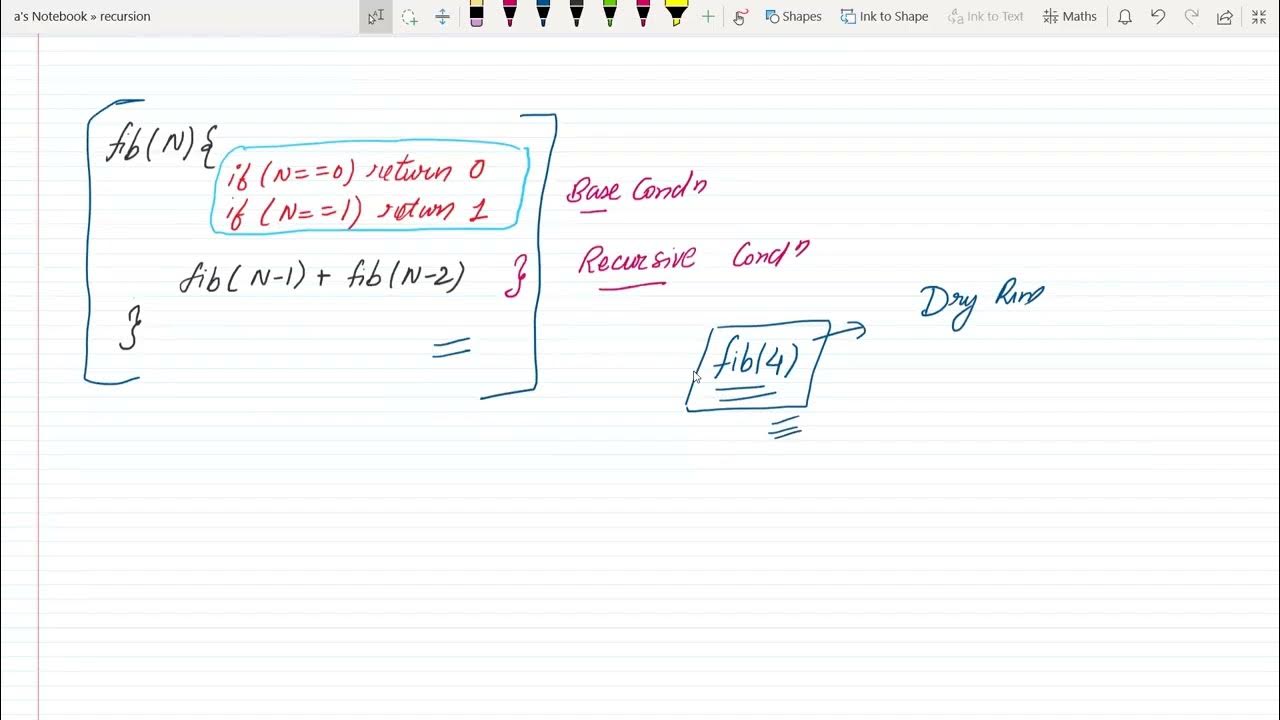 a's Notebook » recursion
Shapes Ink to Shape Ink to Text Maths
fib(N){
if (N==0) return 0
if (N==1) return 1
Base Condn
fib(N-1) + fib(N-2) }
Recursive Condn
}
Dry Run
fib(4)